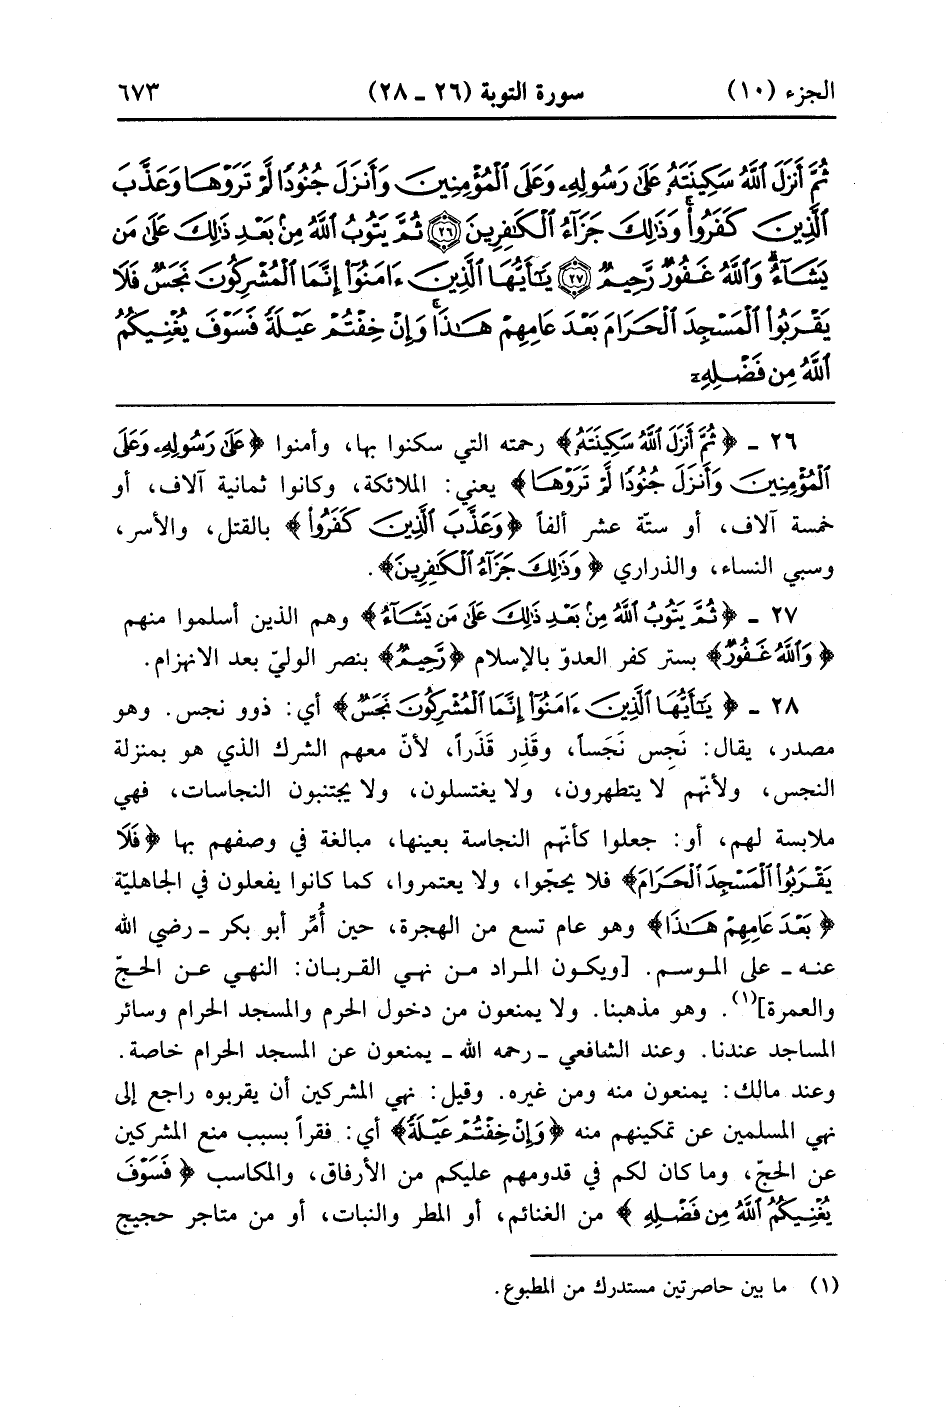 الجزء (١٠) سورة التوبة (٢٦ ـ ٢٨) ٦٧٣
ثُمَّ أَنزَلَ ٱللَّهُ سَكِينَتَهُۥ عَلَىٰ رَسُولِهِۦ وَعَلَى ٱلْمُؤْمِنِينَ وَأَنزَلَ جُنُودًا لَّمْ تَرَوْهَا وَعَذَّبَ
ٱلَّذِينَ كَفَرُوا۟ ۚ وَذَٰلِكَ جَزَآءُ ٱلْكَٰفِرِينَ ﴿٢٦﴾ ثُمَّ يَتُوبُ ٱللَّهُ مِنۢ بَعْدِ ذَٰلِكَ عَلَىٰ مَن
يَشَآءُ ۗ وَٱللَّهُ غَفُورٌ رَّحِيمٌ ﴿٢٧﴾ يَٰٓأَيُّهَا ٱلَّذِينَ ءَامَنُوٓا۟ إِنَّمَا ٱلْمُشْرِكُونَ نَجَسٌ فَلَا
يَقْرَبُوا۟ ٱلْمَسْجِدَ ٱلْحَرَامَ بَعْدَ عَامِهِمْ هَٰذَا ۚ وَإِنْ خِفْتُمْ عَيْلَةً فَسَوْفَ يُغْنِيكُمُ
ٱللَّهُ مِن فَضْلِهِۦٓ
٢٦ ـ ﴿ثُمَّ أَنزَلَ ٱللَّهُ سَكِينَتَهُۥ﴾ رحمته التي سكنوا بها، وأمنوا ﴿عَلَىٰ رَسُولِهِۦ وَعَلَى
ٱلْمُؤْمِنِينَ وَأَنزَلَ جُنُودًا لَّمْ تَرَوْهَا﴾ يعني: الملائكة، وكانوا ثمانية آلاف، أو
خمسة آلاف، أو ستّة عشر ألفاً ﴿وَعَذَّبَ ٱلَّذِينَ كَفَرُوا۟﴾ بالقتل، والأسر،
وسبي النساء، والذراري ﴿وَذَٰلِكَ جَزَآءُ ٱلْكَٰفِرِينَ﴾.
٢٧ ـ ﴿ثُمَّ يَتُوبُ ٱللَّهُ مِنۢ بَعْدِ ذَٰلِكَ عَلَىٰ مَن يَشَآءُ﴾ وهم الذين أسلموا منهم
﴿وَٱللَّهُ غَفُورٌ﴾ بستر كفر العدوّ بالإسلام ﴿رَّحِيمٌ﴾ بنصر الوليّ بعد الانهزام.
٢٨ ـ ﴿يَٰٓأَيُّهَا ٱلَّذِينَ ءَامَنُوٓا۟ إِنَّمَا ٱلْمُشْرِكُونَ نَجَسٌ﴾ أي: ذوو نجس. وهو
مصدر، يقال: نَجِس نَجَساً، وقَذِر قَذَراً، لأنّ معهم الشرك الذي هو بمنزلة
النجس، ولأنّهم لا يتطهرون، ولا يغتسلون، ولا يجتنبون النجاسات، فهي
ملابسة لهم، أو: جعلوا كأنّهم النجاسة بعينها، مبالغة في وصفهم بها ﴿فَلَا
يَقْرَبُوا۟ ٱلْمَسْجِدَ ٱلْحَرَامَ﴾ فلا يحجّوا، ولا يعتمروا، كما كانوا يفعلون في الجاهليّة
﴿بَعْدَ عَامِهِمْ هَٰذَا﴾ وهو عام تسع من الهجرة، حين أُمِّر أبو بكر ـ رضي الله
عنه ـ على الموسم. [ويكون المراد من نهي القربان: النهي عن الحجّ
والعمرة](١). وهو مذهبنا. ولا يمنعون من دخول الحرم والمسجد الحرام وسائر
المساجد عندنا. وعند الشافعي ـ رحمه الله ـ يمنعون عن المسجد الحرام خاصة.
وعند مالك: يمنعون منه ومن غيره. وقيل: نهي المشركين أن يقربوه راجع إلى
نهي المسلمين عن تمكينهم منه ﴿وَإِنْ خِفْتُمْ عَيْلَةً﴾ أي: فقراً بسبب منع المشركين
عن الحجّ، وما كان لكم في قدومهم عليكم من الأرفاق، والمكاسب ﴿فَسَوْفَ
يُغْنِيكُمُ ٱللَّهُ مِن فَضْلِهِ﴾ من الغنائم، أو المطر والنبات، أو من متاجر حجيج
(١) ما بين حاصرتين مستدرك من المطبوع.